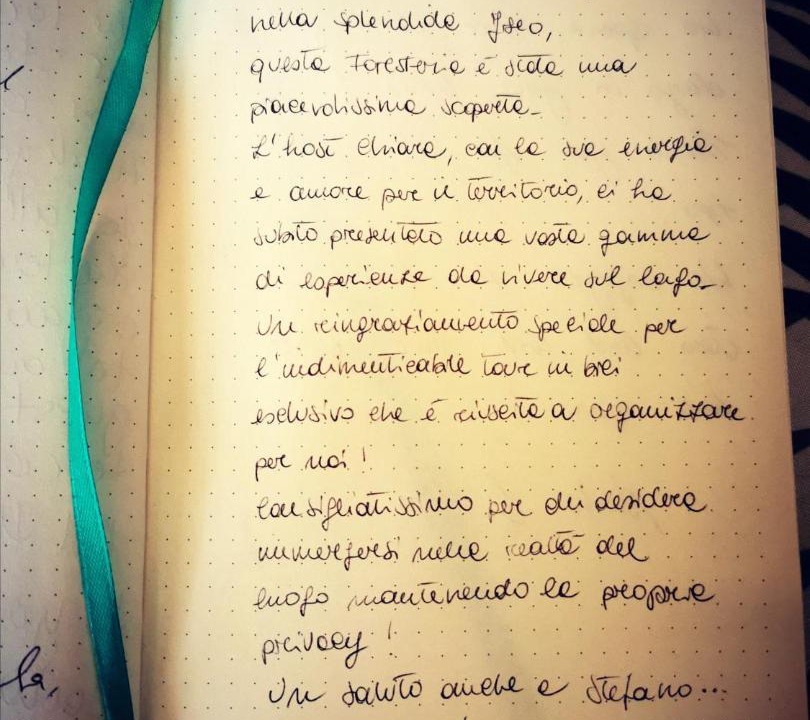 nella splendida Iseo,
questa Foresteria è stata una
piacevolissima scoperta.
L'host Chiara, con la sua energia
e amore per il territorio, ci ha
subito presentato una vasta gamma
di esperienze da vivere sul lago.
Un ringraziamento speciale per
l'indimenticabile tour in
esclusivo che è riuscita a organizzare
per noi!
Consigliatissimo per chi desidera
immergersi nella realtà del
luogo mantenendo la propria
privacy!
Un saluto anche a Stefano...
la,